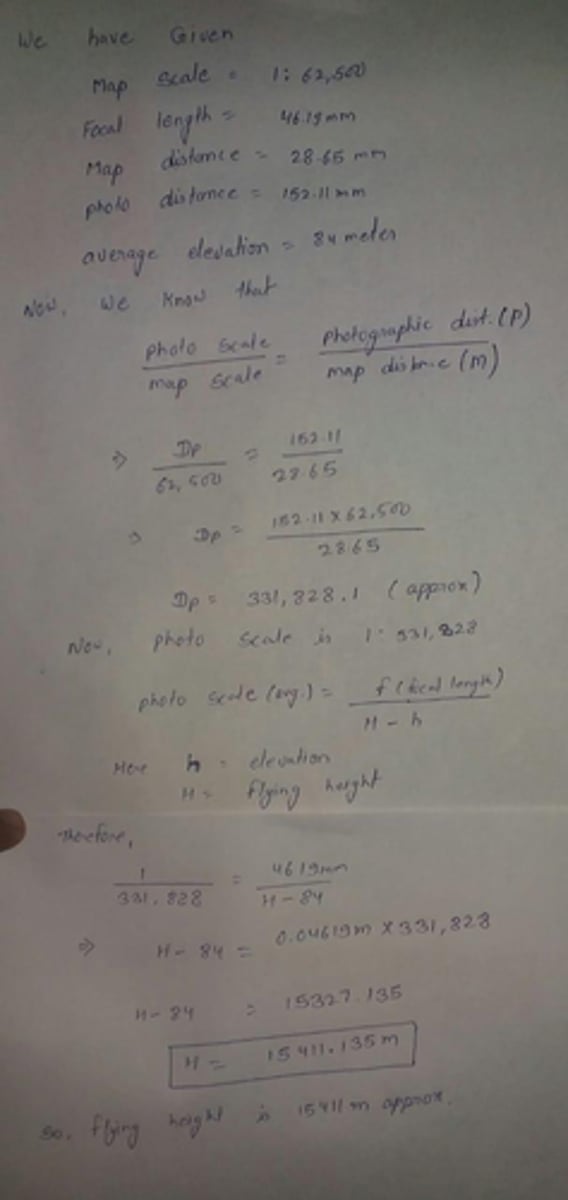 We have Given
Map scale = 1: 62,500
Focal length = 46.19 mm
Map distance = 28.65 mm
photo distance = 152.11 mm
average elevation = 84 meter
Now, we know that
photo scale / map scale = photographic dist.(P) / map distance (M)
⇒ Dp / 62,500 = 152.11 / 28.65
⇒ Dp = 152.11 x 62,500 / 28.65
Dp = 331,828.1 (approx)
Now, photo scale is 1: 331,828
photo scale (avg.) = f (focal length) / H - h
Here h = elevation
H = flying height
Therefore,
1 / 331,828 = 46.19mm / H - 84
⇒ H - 84 = 0.04619m x 331,828
H - 84 = 15327.135
H = 15411.135 m
So, flying height is 15411 m approx.